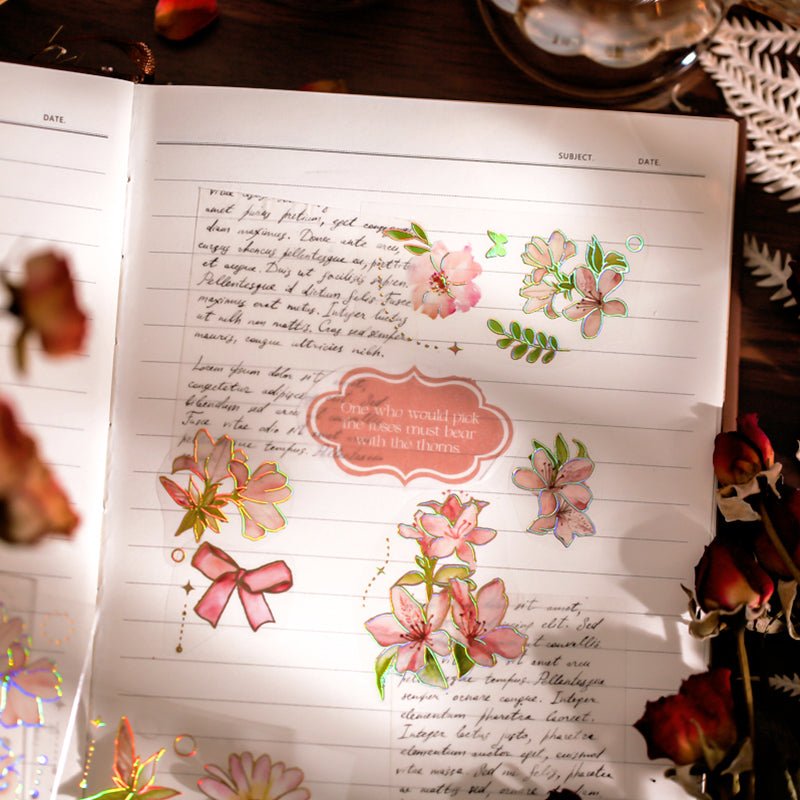 DATE.
SUBJECT. DATE.
amet purus pretium, eget
diam maximus. Donec ante arcu,
cursus rhoncus pellentesque ac,
et augue. Duis ut facilisis sapien.
Pellentesque id dictum justo. Fusce
maximus erat metus. Integer luctus
ut nibh non mattis. Cras sed semper
mauris, congue ultricies nibh.
Lorem ipsum dolor sit
consectetur
bibendum sed arcu
Fusce vitae odio
tempus.
One who would pick
the roses must bear
with the thorns.
sit amet,
elit. Sed
convallis
sit amet arcu
tempus. Pellentesque
semper ornare congue. Integer
elementum pharetra laoreet.
Integer lectus justo, pharetra
elementum auctor eget, euismod
vitae massa. Sed mi felis, pharetra
ac mattis sed, ornare